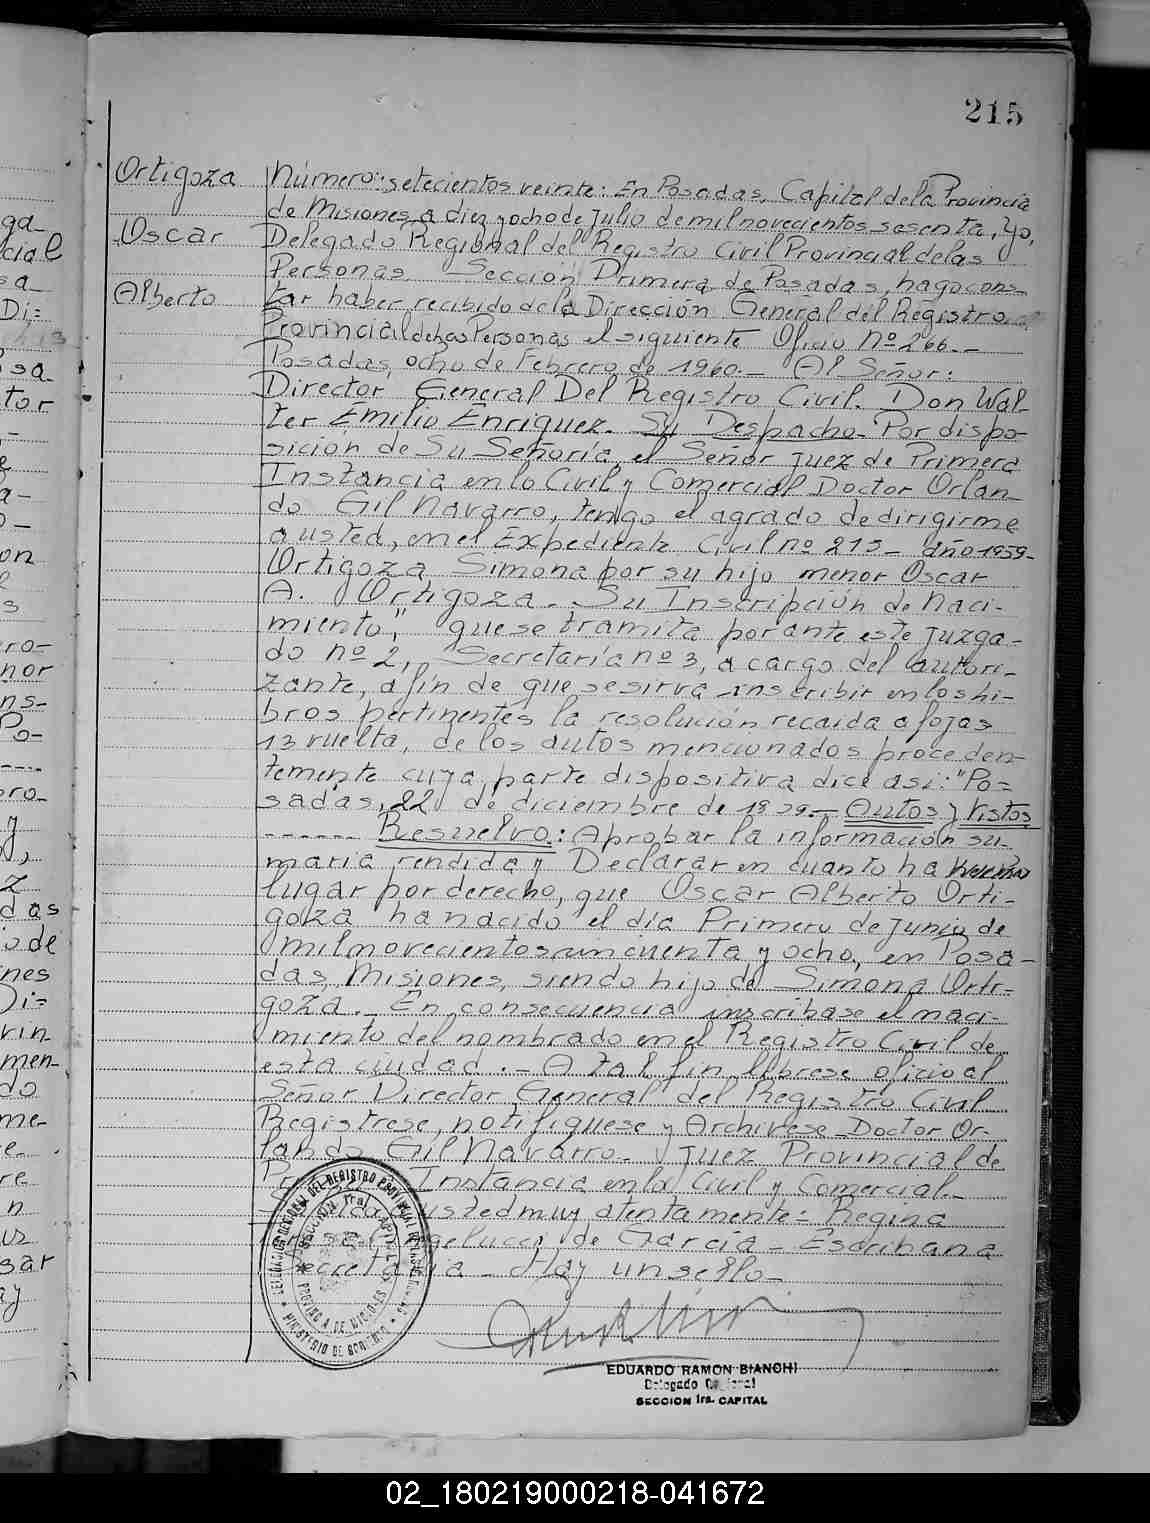 215
Ortigoza
Oscar
Alberto
Número: setecientos veinte: En Posadas, Capital de la Provincia
de Misiones a diez y ocho de Julio de mil novecientos sesenta, Yo,
Delegado Regional del Registro Civil Provincial de las
Personas Sección Primera de Posadas, hago cons-
tar haber recibido de la Dirección General del Registro
Provincial de las Personas el siguiente Oficio Nº 266.-
Posadas, ocho de Febrero de 1960.- Al Señor:
Director General Del Registro Civil. Don Wal-
ter Emilio Enriquez. Su Despacho- Por dispo-
sición de Su Señoria, el Señor Juez de Primera
Instancia en lo Civil y Comercial Doctor Orlan-
do Gil Navarro, tengo el agrado de dirigirme
a usted, en el Expediente Civil nº 215- año 1959-
Ortigoza Simona por su hijo menor Oscar
A. Ortigoza. Su Inscripción de Naci-
miento," que se tramita por ante este Juzga-
do nº 2, Secretaría nº 3, a cargo del autori-
zante, a fin de que se sirva inscribir en los li-
bros pertinentes la resolución recaida a fojas
13 vuelta, de los autos mencionados proceden-
temente cuya parte dispositiva dice asi: "Po-
sadas, 22 de diciembre de 1959.- Autos y Vistos
------ Resuelvo: Aprobar la información su-
maria rendida y Declarar en cuanto ha
lugar por derecho, que Oscar Alberto Orti-
goza ha nacido el día Primero de Junio de
mil novecientos cincuenta y ocho, en Posa-
das, Misiones, siendo hijo de Simona Orti-
goza.- En consecuencia inscribase el naci-
miento del nombrado en el Registro Civil de
esta ciudad.- A tal fin librese oficio al
Señor Director General del Registro Civil
Registrese, notifiquese y Archivese- Doctor Or-
lando Gil Navarro- Juez Provincial de
Instancia en lo Civil y Comercial.-
usted muy atentamente- Regina
de García- Escribana
Secretaria- Hay un sello-
EDUARDO RAMON BIANCHI
Delegado
SECCION 1ra. CAPITAL
02_180219000218-041672